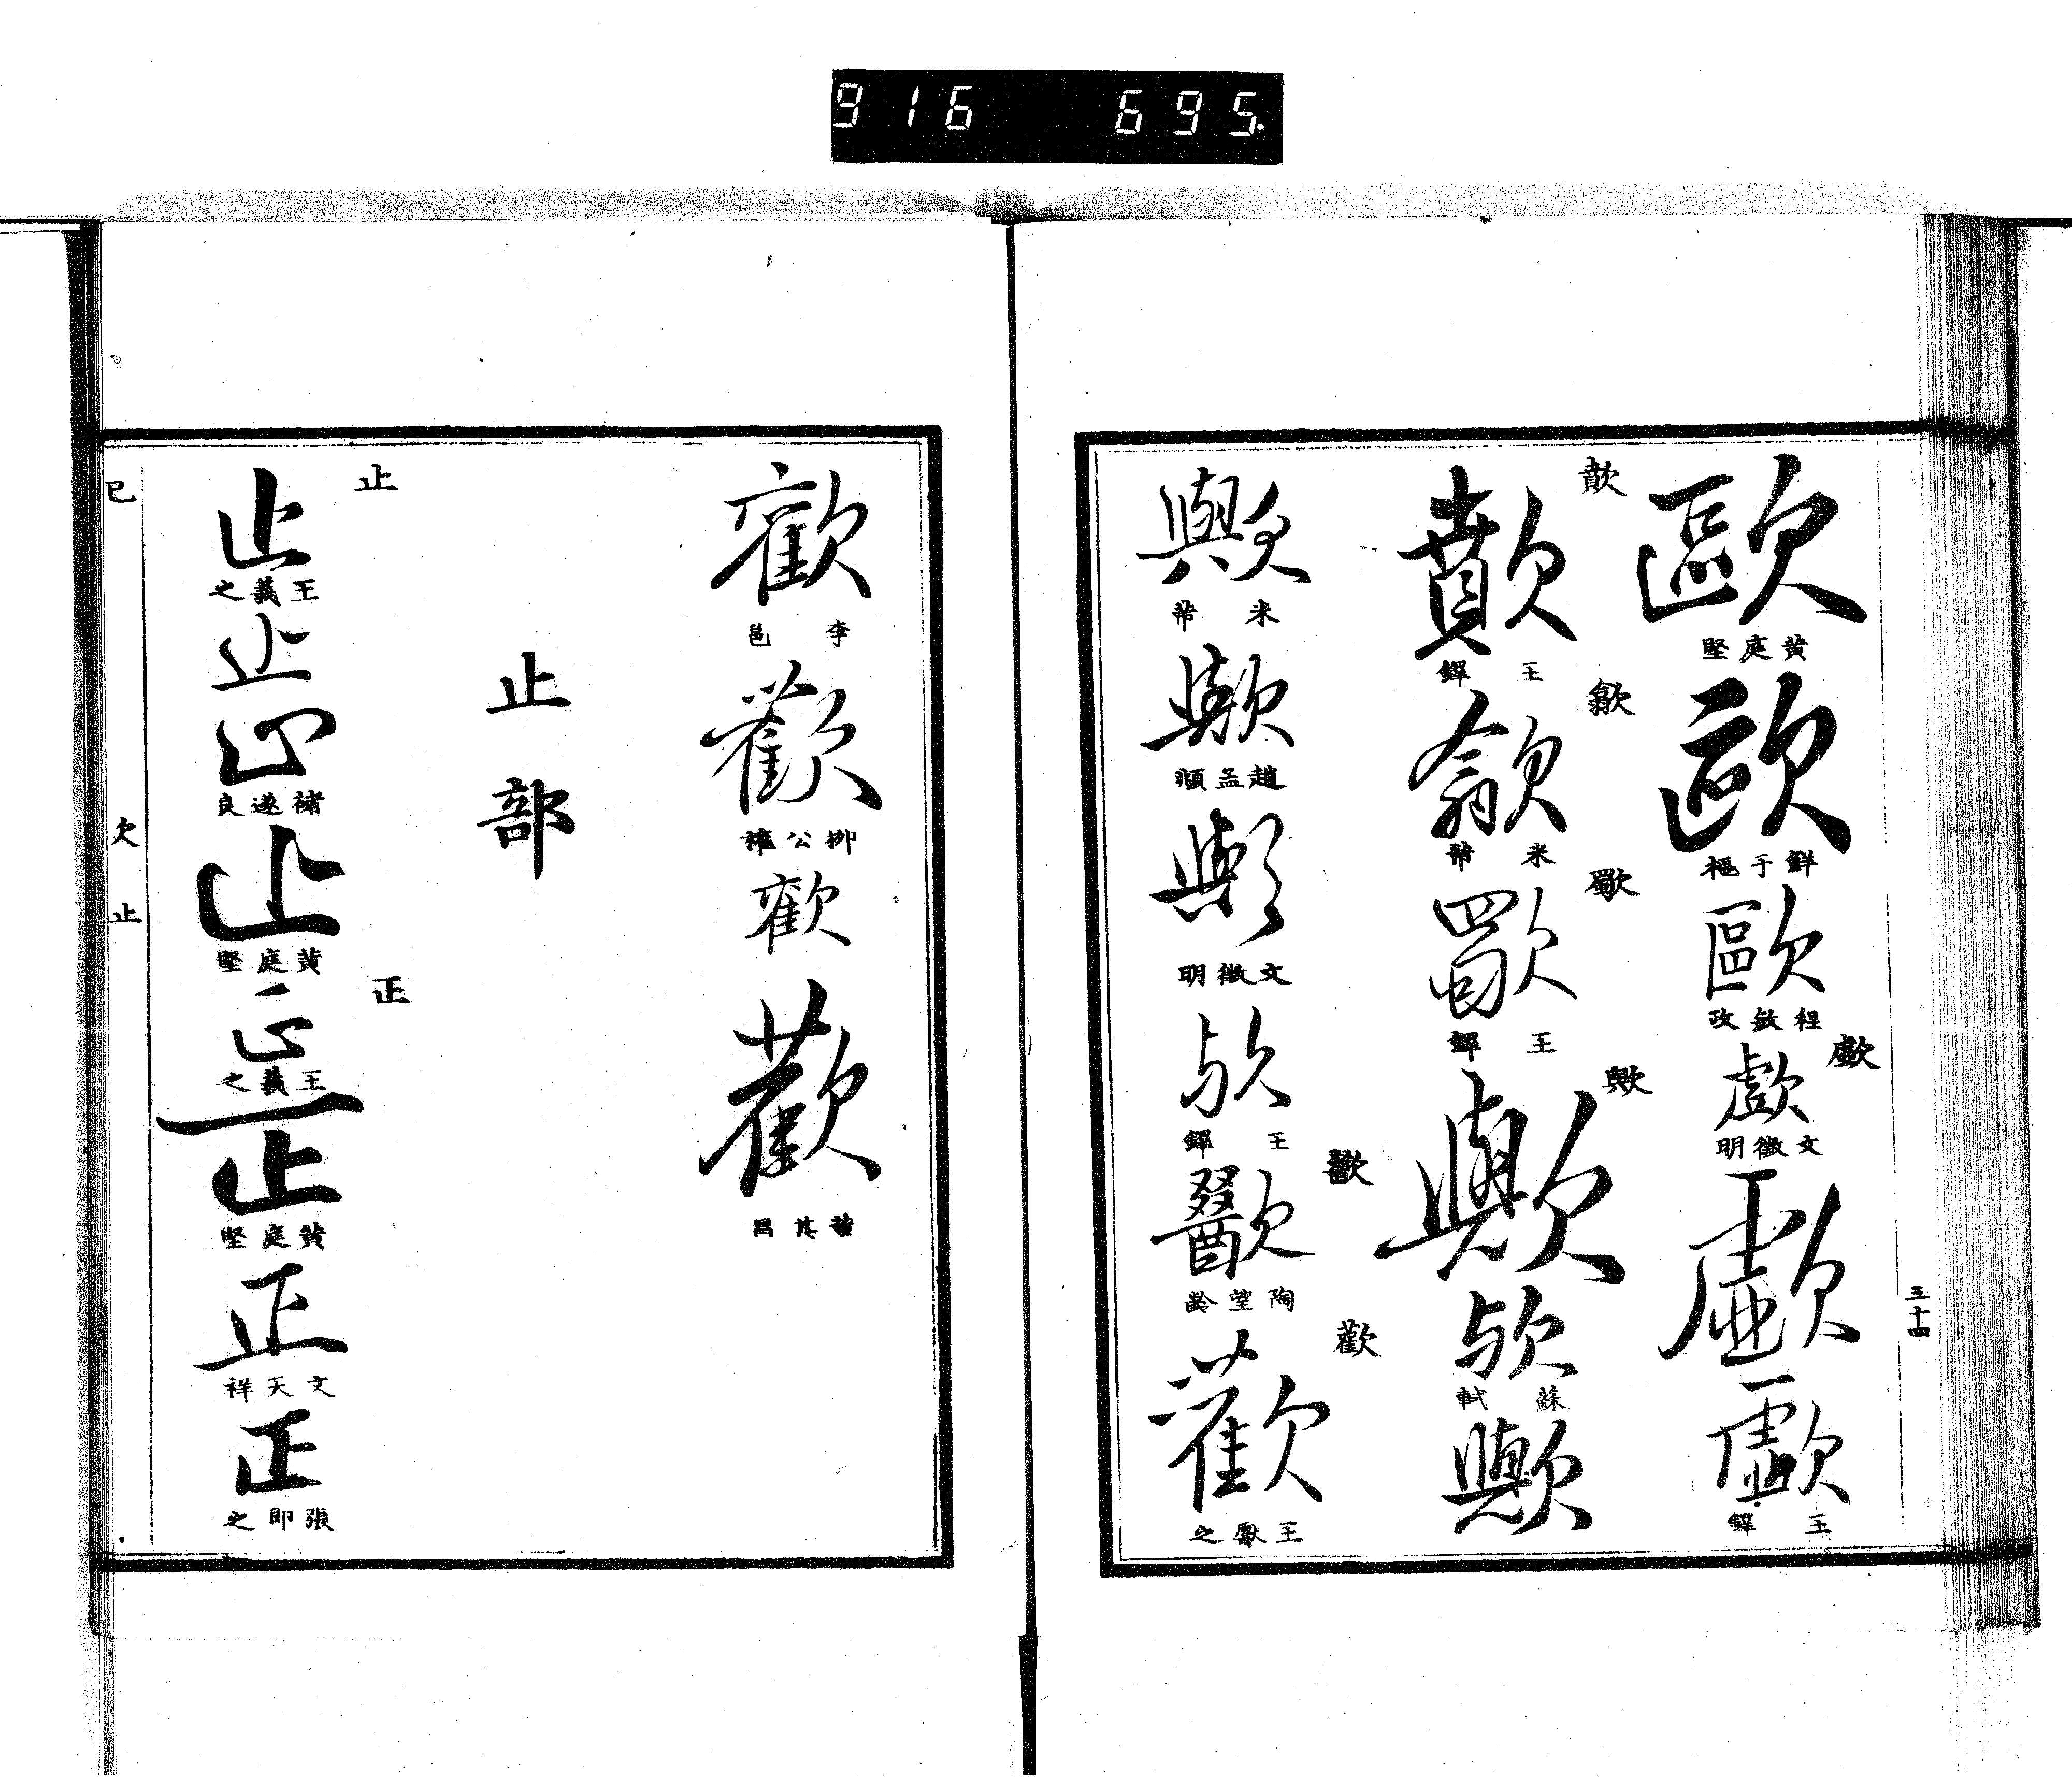 916 695.
三十四
歐
黄庭堅
歐
鮮于樞
歐
程敏政
歔
歔
文徵明
歔
歔
王鐸
歕
歕
王鐸
歙
歙
米芾
歜
歜
王鐸
歟
歟
欤
蘇軾
歟
歟
米芾
歟
趙孟頫
歟
文徵明
欤
王鐸
歠
歠
陶望齡
歡
歡
王獻之
歡
李邕
歡
柳公權
歡
歡
董其昌
止部
止
止
王羲之
止
止
褚遂良
止
黄庭堅
正
正
王羲之
正
黄庭堅
正
文天祥
正
張即之
巳
欠
止